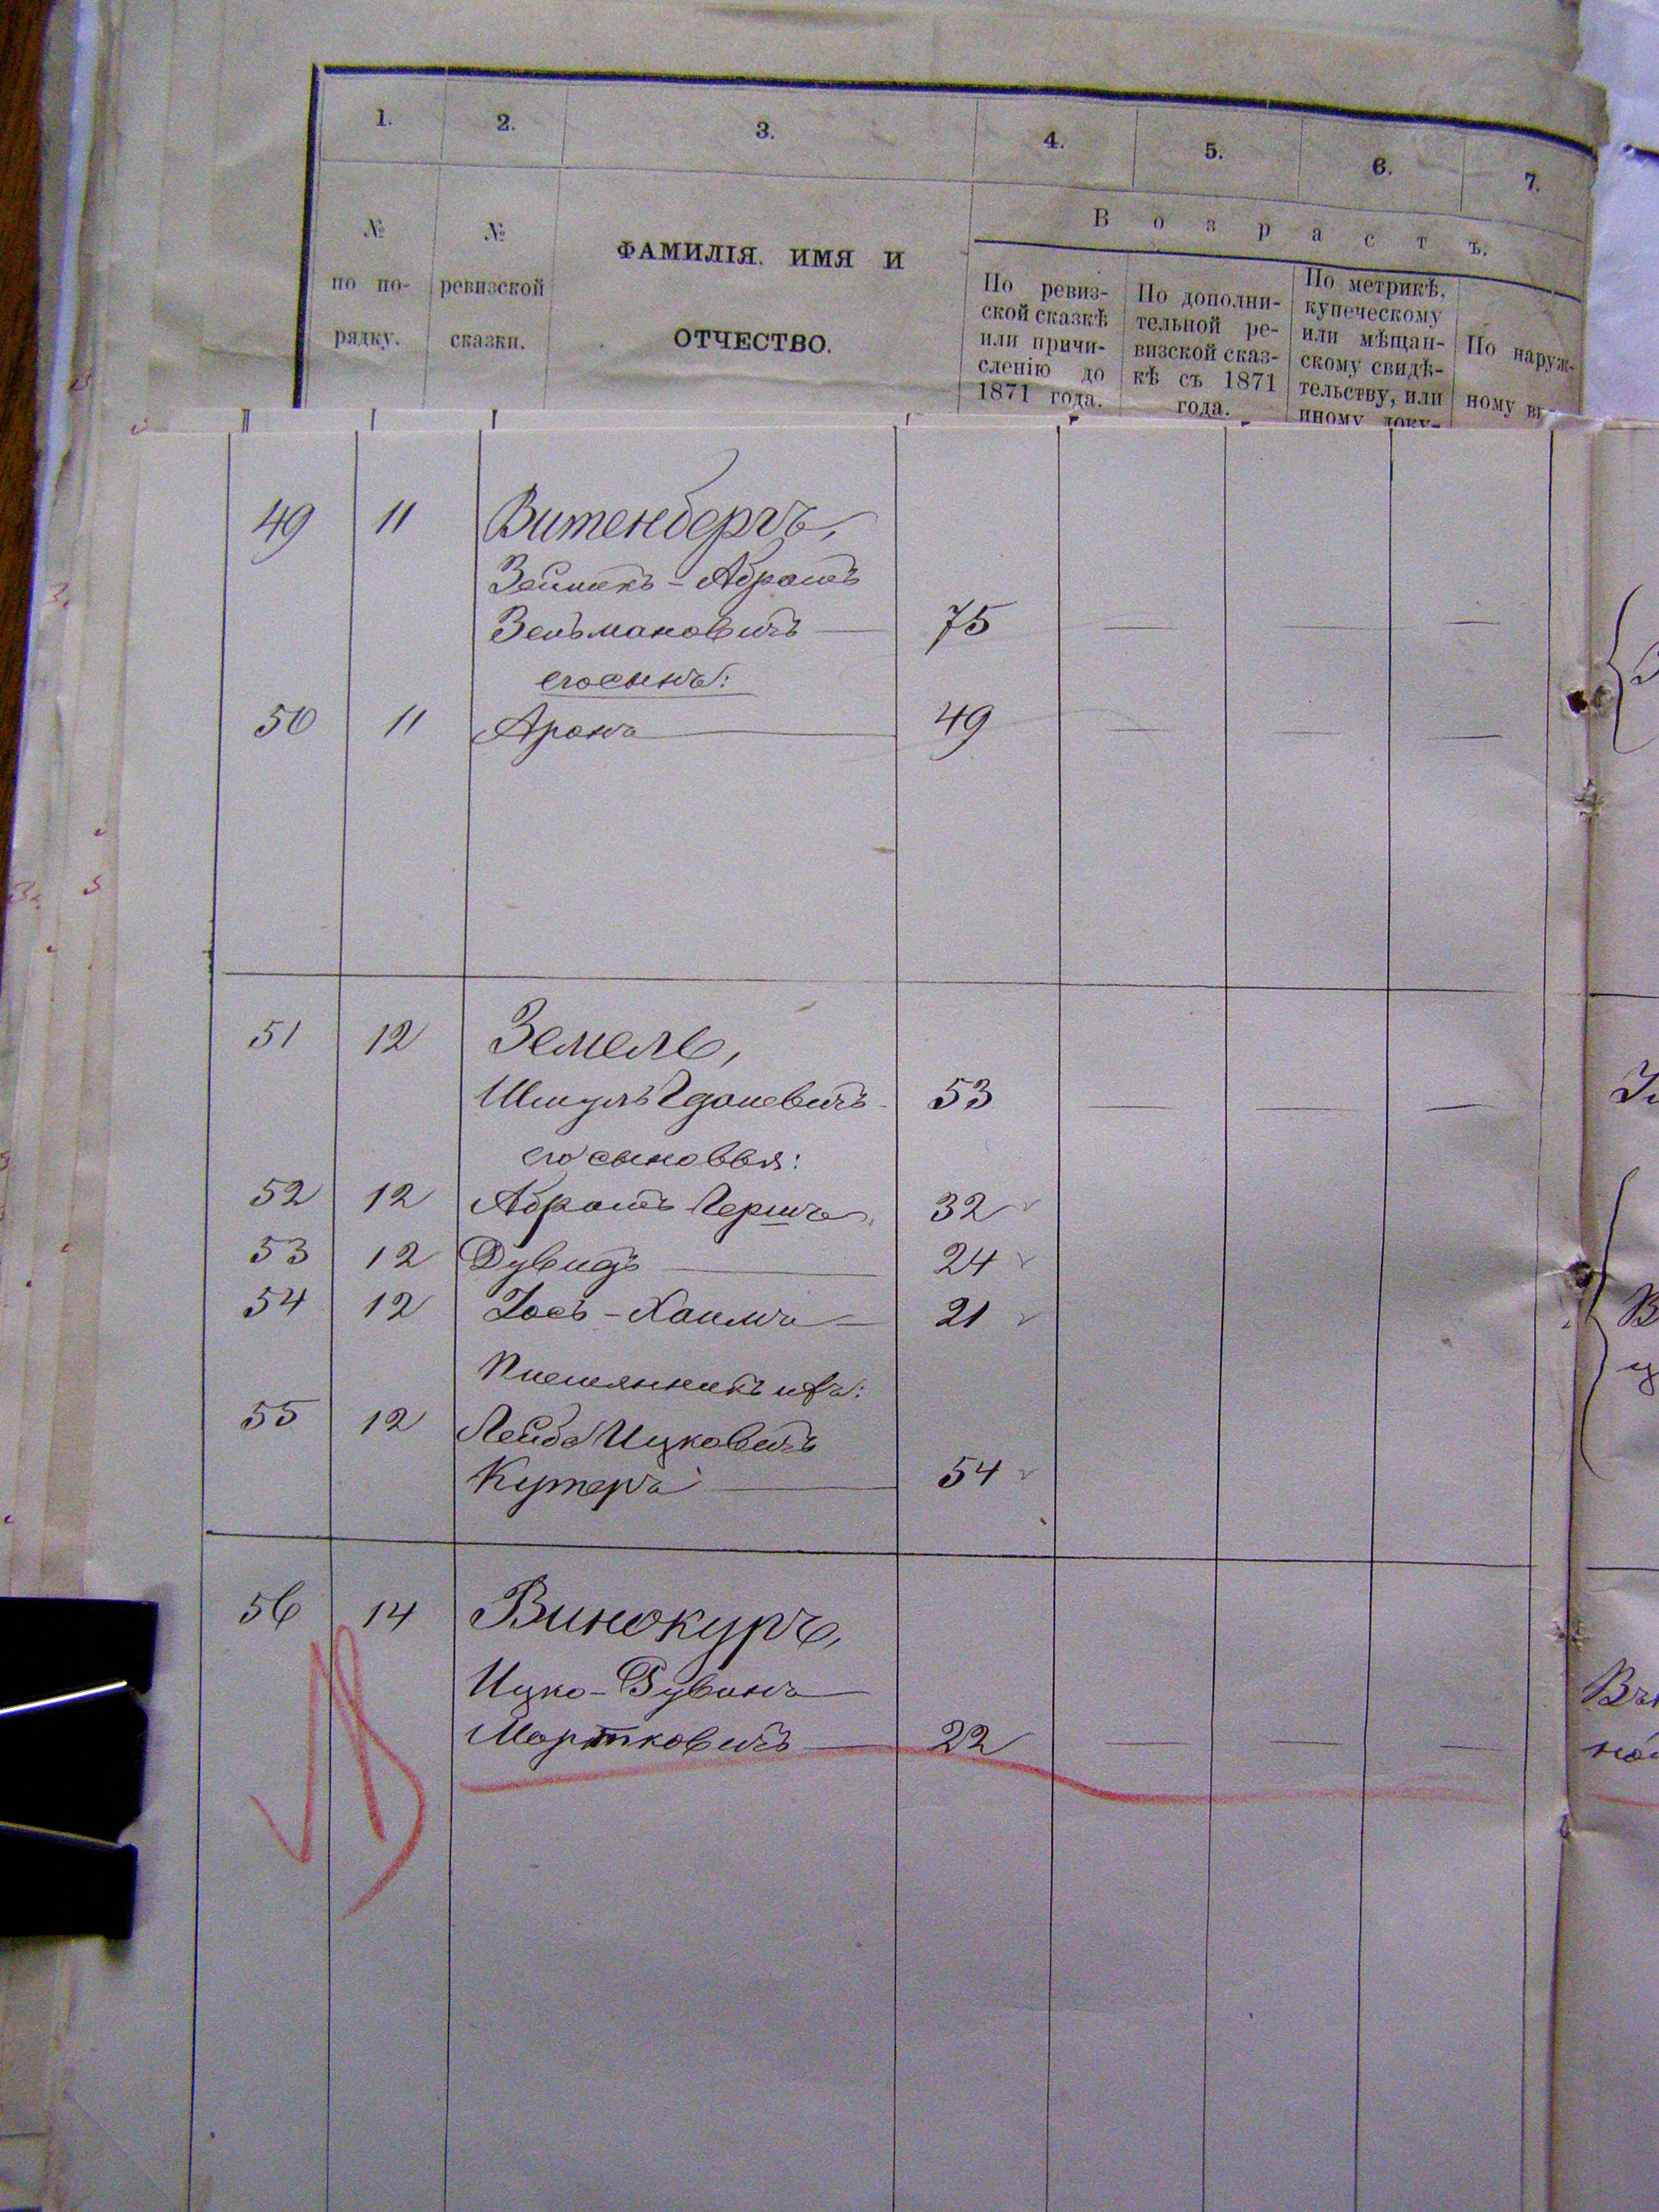 1. 2. 3. 4. 5. 6. 7.
№ по по-рядку.
№ ревизской сказки.
ФАМИЛІЯ. ИМЯ И
ОТЧЕСТВО.
Возрастъ.
По ревиз-
ской сказкѣ
или причи-
сленію до
1871 года.
По дополни-
тельной ре-
визской сказ-
кѣ съ 1871
года.
По метрикѣ,
купеческому
или мѣщан-
скому свидѣ-
тельству, или
иному доку-
По наруж-
ному ви-
49 11 Витенбергъ,
Абрамъ
Зельмановичъ — 75 — — —
его сынъ:
50 11 Аронъ — 49 — — —
51 12 Земель,
Шмуль 53 — — —
его сыновья:
52 12 Абрамъ Гершъ 32
53 12 Дувидъ — 24
54 12 Іосъ-Хаимъ — 21
Племянникъ ихъ:
55 12 Лейба Ицковичъ
Кутеръ — 54
56 14 Винокуръ,
Ицко-Рувинъ
Мортковичъ — 22 — — —